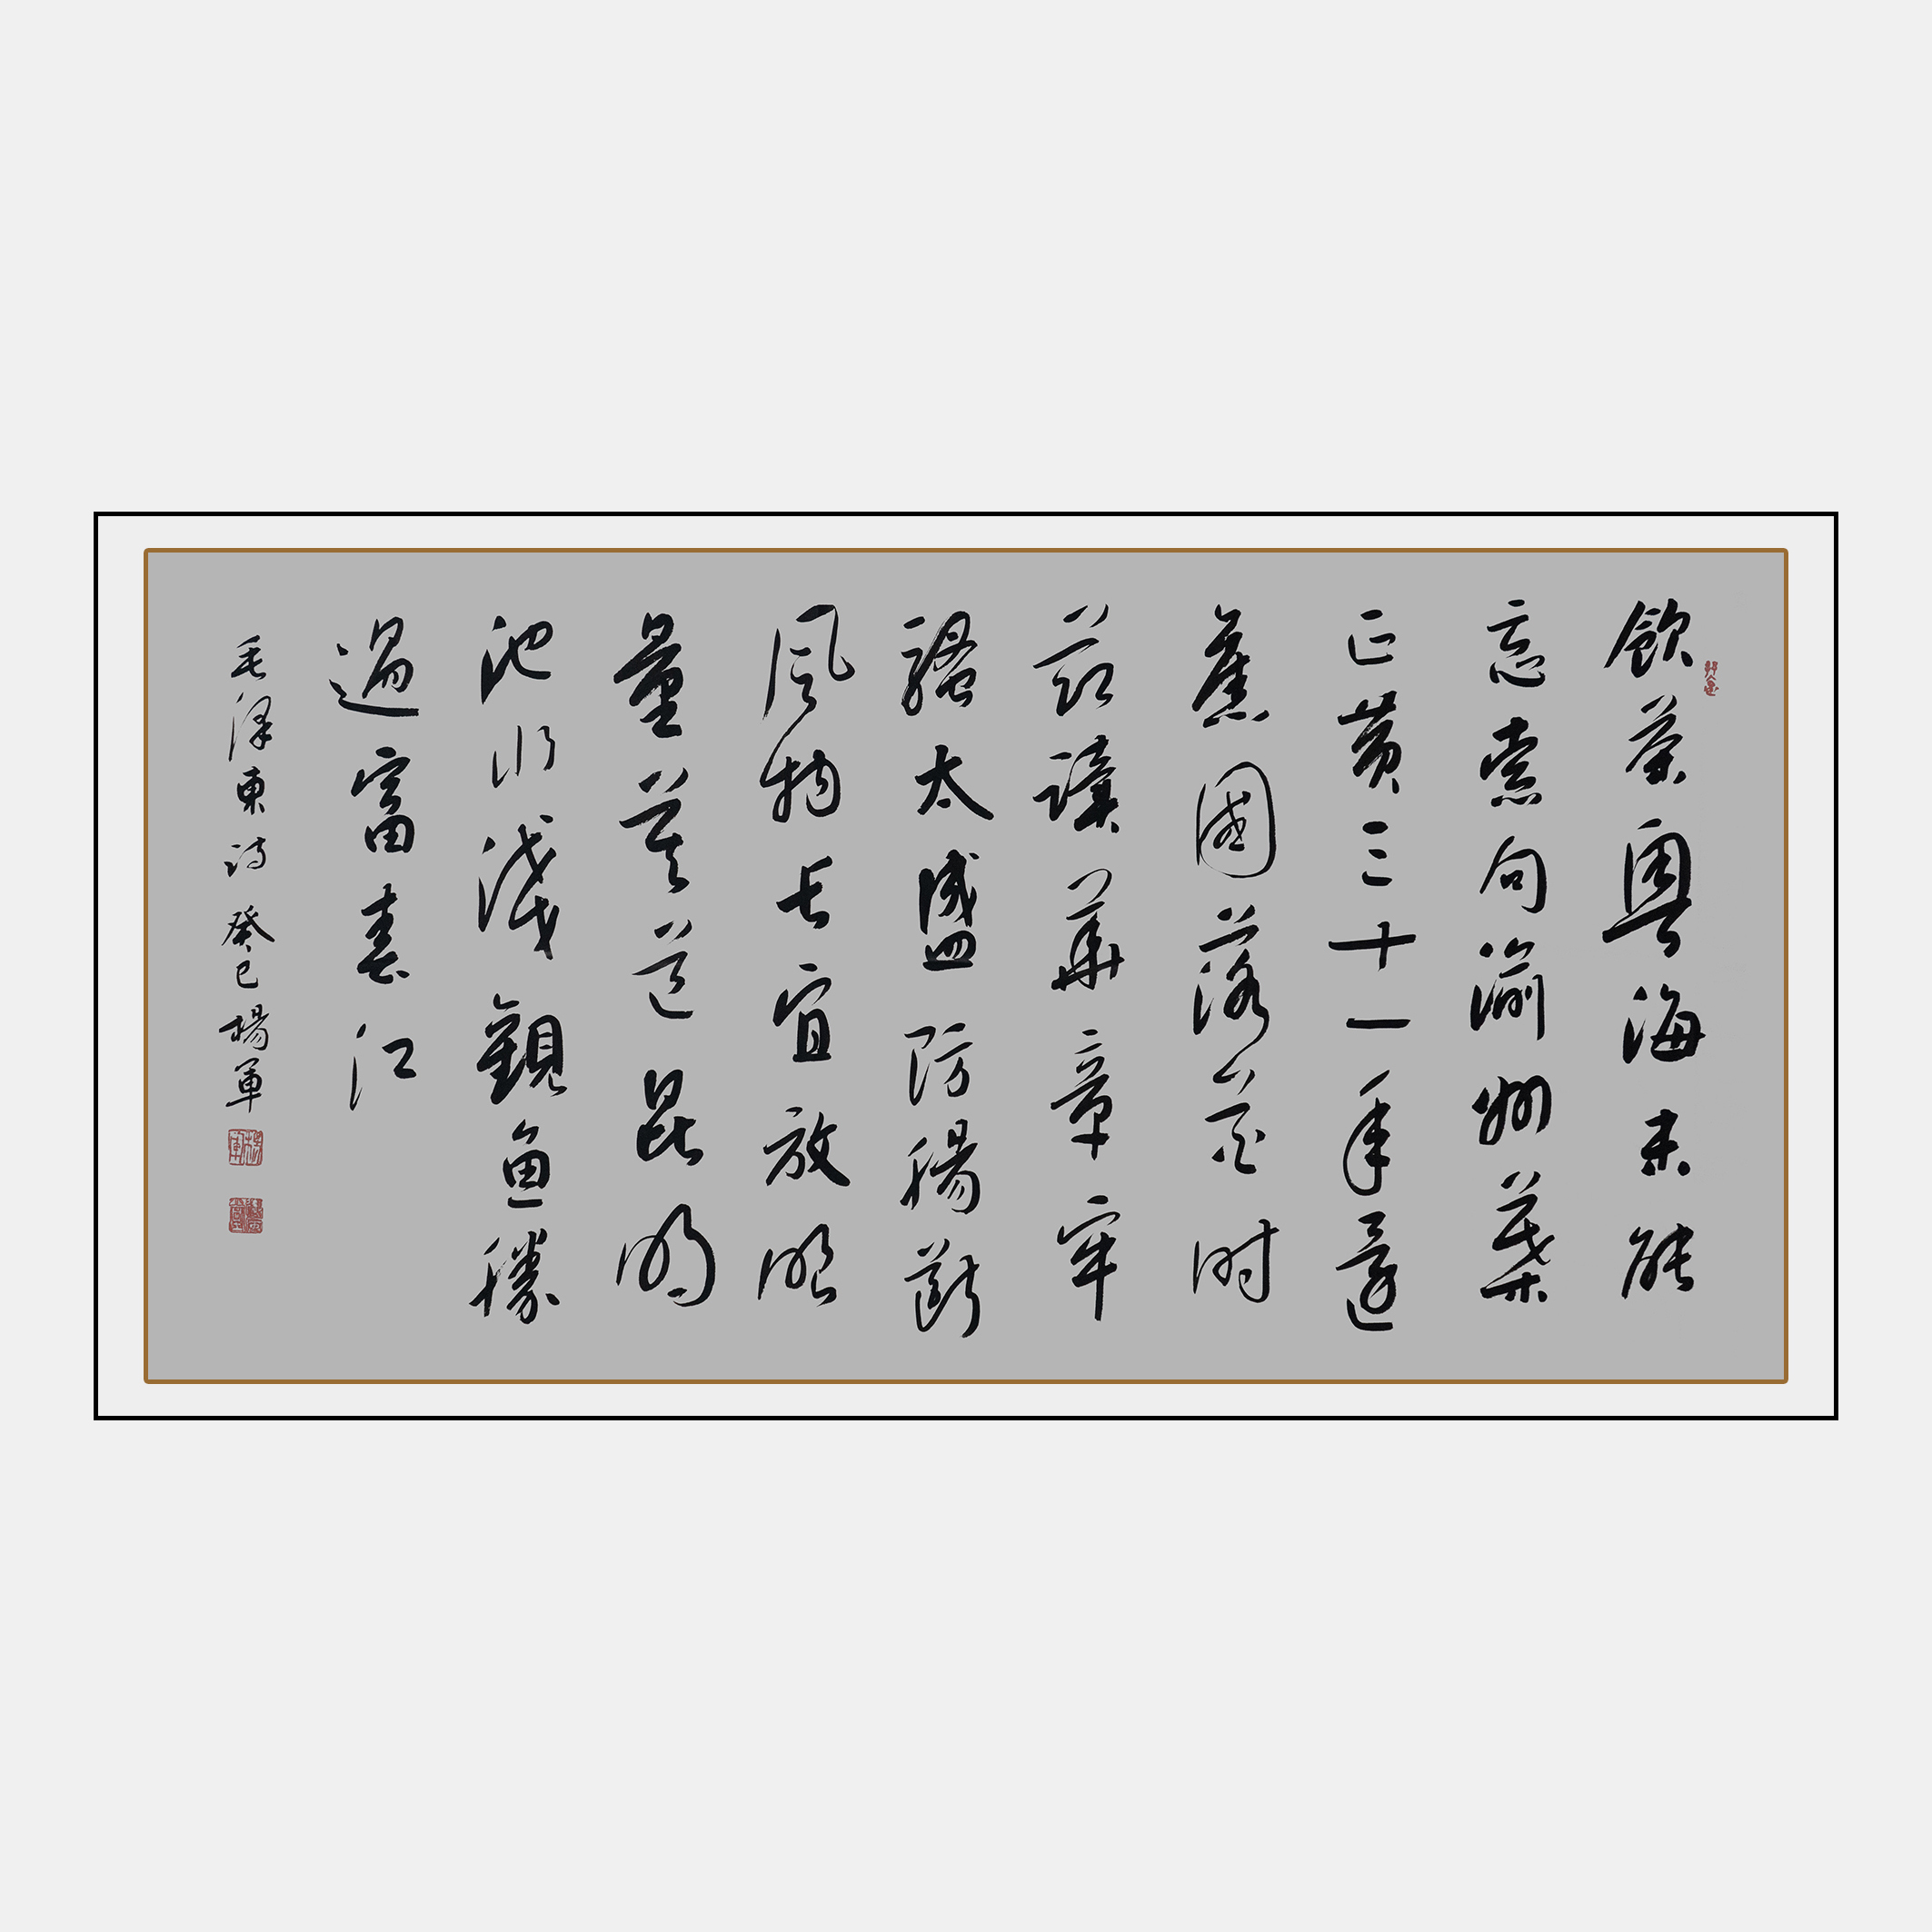 飲茶粵海未能
忘索句渝州葉
正黃三十一年還
舊國落花時
節讀華章牢
騷太盛防腸斷
風物長宜放眼
量莫道昆明
池水淺觀魚勝
過富春江
毛澤東詩 癸巳 楊軍
楊軍